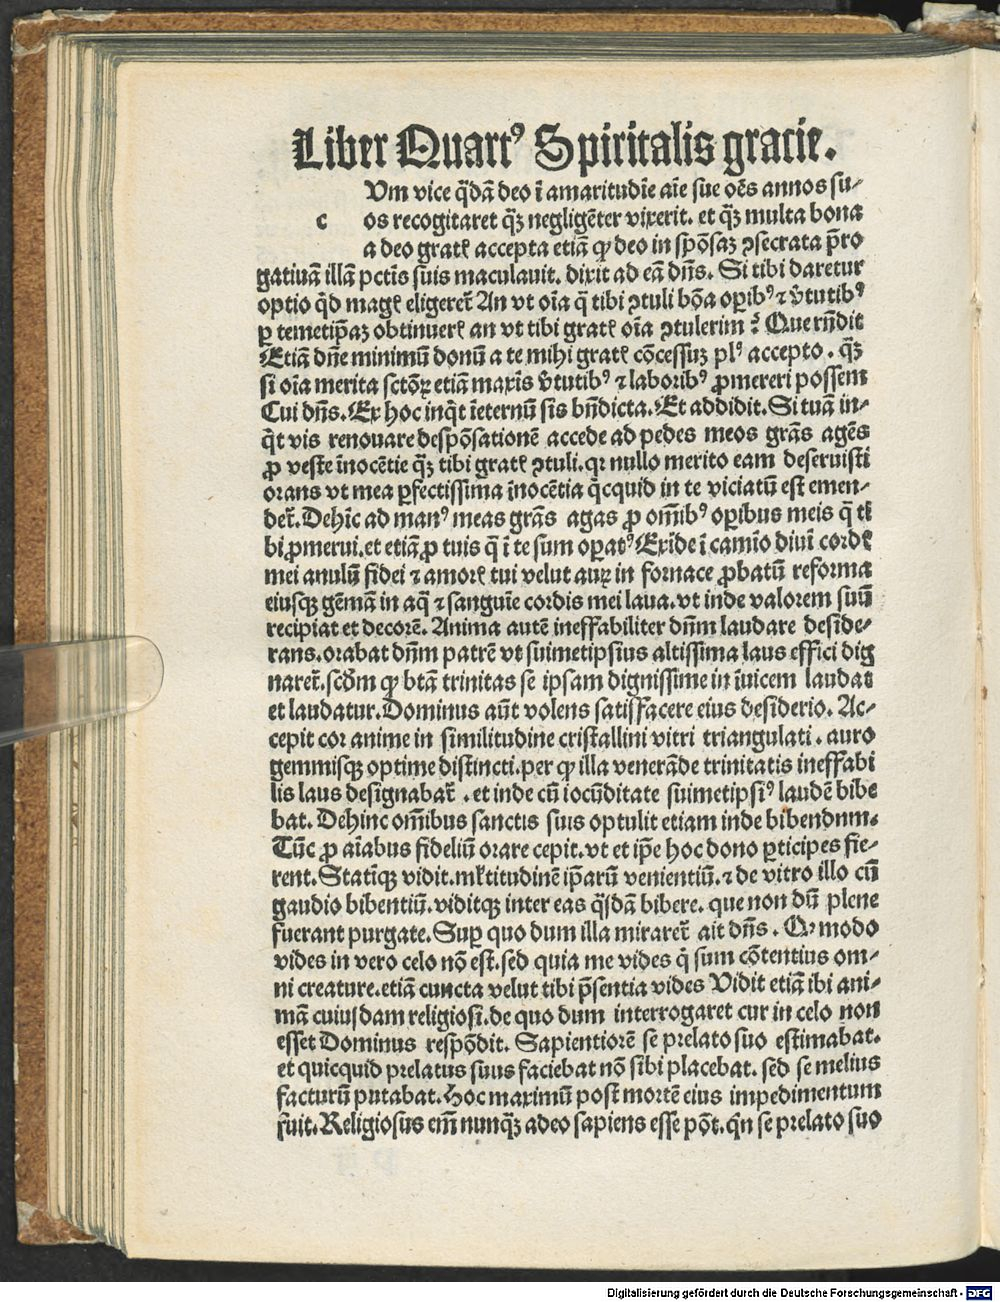 Liber Quartꝰ Spiritalis gracie.
Vm vice q̄dā deo ī amaritudīe aīe sue oēs annos su⸗
c os recogitaret qꝫ negligēter vixerit. et qꝫ multa bona
a deo gratꝭ accepta etiā ꝙ deo in spōsaꝫ ꝯsecrata p̄ro
gatiuā illā pctīs suis maculauit. dixit ad eā dn̄s. Si tibi daretur
optio q̄d magꝭ eligeret̄ An vt oīa q̄ tibi ꝯtuli bōa oꝑibꝰ ⁊ v̄tutibꝰ
ꝑ temetip̄aꝫ obtinuerꝭ an vt tibi gratꝭ oīa ꝯtulerim? Que rn̄dit
Etiā dn̄e minimū donū a te mihi gratꝭ cōcessuꝫ plꝰ accepto. qꝫ
si oīa merita sctōꝝ etiā maxīs v̄tutibꝰ ⁊ laboribꝰ ꝓmereri possem
Cui dn̄s. Ex hoc inq̄t īeternū sis bn̄dicta. Et addidit. Si tuā in⸗
q̄t vis renouare despōsationē accede ad pedes meos grās agēs
ꝓ veste īnocētie qꝫ tibi gratꝭ ꝯtuli. qꝛ nullo merito eam deseruisti
orans vt mea ꝑfectissima īnocētia q̄cquid in te viciatū est emen⸗
det̄. Dehīc ad manꝰ meas grās agas ꝓ om̄ibꝰ oꝑibus meis q̄ ti
bi ꝓmerui. et etiā ꝓ tuis q̄ ī te sum oꝑatꝰ Exīde ī camīo diuī cordꝭ
mei anulū fidei ⁊ amorꝭ tui velut auꝝ in fornace ꝓbatū reforma
eiusqꝫ gēmā in aq̄ ⁊ sanguīe cordis mei laua. vt inde valorem suū
recipiat et decorē. Anima autē ineffabiliter dn̄m laudare deside⸗
rans. orabat dn̄m patrē vt suimetipsius altissima laus effici dig
naret̄. scd̄m ꝙ btā trinitas se ipsam dignissime in īuicem laudat
et laudatur. Dominus aūt volens satisfacere eius desiderio. Ac⸗
cepit cor anime in similitudine cristallini vitri triangulati. auro
gemmisqꝫ optime distincti. per ꝙ illa venerāde trinitatis ineffabi
lis laus designabat̄. et inde cū iocūditate suimetipsiꝰ laudē bibe
bat. Dehinc om̄ibus sanctis suis optulit etiam inde bibendum.
Tūc ꝓ aīabus fideliū orare cepit. vt et ip̄e hoc dono ꝑticipes fie⸗
rent. Statīqꝫ vidit. mꝉtitudinē ip̄arū venientiū. ⁊ de vitro illo cū
gaudio bibentiū. viditqꝫ inter eas q̄sdā bibere. que non dū plene
fuerant purgate. Suꝑ quo dum illa miraret̄ ait dn̄s. Qꝰ modo
vides in vero celo nō est. sed quia me vides q̄ sum cōtentius om⸗
ni creature. etiā cuncta velut tibi p̄sentia vides Vidit etiā ibi ani⸗
mā cuiusdam religiosi. de quo dum interrogaret cur in celo non
esset Dominus respōdit. Sapientiorē se prelato suo estimabat.
et quicquid prelatus suus faciebat nō sibi placebat. sed se melius
facturū putabat. Hoc maximū post mortē eius impedimentum
fuit. Religiosus em̄ nunqꝫ adeo sapiens esse pōt. qn̄ se prelato suo
Digitalisierung gefördert durch die Deutsche Forschungsgemeinschaft - DFG